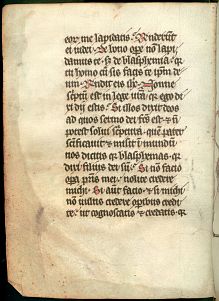 eor, me lapidatis. Rnderūt
ei iudei. De bono ope nō lapi
damus te. sz de blasphemia. et
qz tu homo cū sis facis te ipm de
um. Rndit eis ihc. Nonne
scptū est in lege vra. qz ego di
xi dii estis. Si illos dixit deos
ad quos sermo dei fcūs est. et n̄
potest solui scriptura. quē pater
scificauit et misit ī mundū
vos dicitis qz blasphemas. qz
dixi filius dei sū. Si nō facio
opa pris mei. nolite credere
michi. Si aūt facio. et si michi
nō vultis credere opibus credi
te. ut cognoscatis et credatis. qz